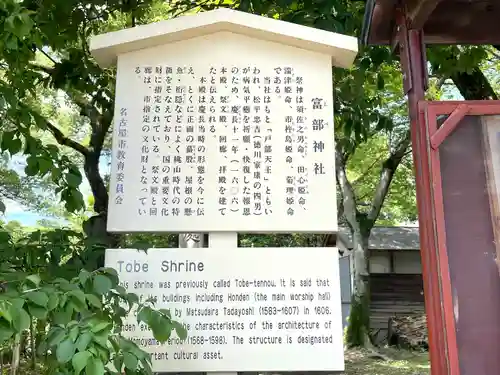 富部神社
祭神は須佐之男命、田心姫命、
湍津姫命、市杵島姫命、菊理姫命
である。
当社はもと「戸部天王」ともい
われ、松平忠吉（徳川家康の四男）
が病気平癒を祈願し、快復した報恩
のため、慶長十一年（一六〇六）
本殿、祭文殿、回廊、拝殿を建て
たと伝えられる。
本殿は慶長当時の形態を今に伝
え、とくに正面の蟇股、屋根の懸
魚・桁隠などによく桃山時代の特
徴をそなえており、国の重要文化
財に指定されている。祭文殿と回
廊は、市指定の文化財となってい
る。
名古屋市教育委員会
Tobe Shrine
shrine was previously called Tobe-tennou. It is said that
of its buildings including Honden (the main worship hall)
by Matsudaira Tadayoshi (1583-1607) in 1606.
the characteristics of the architecture of
period (1568-1600). The structure is designated
cultural asset.